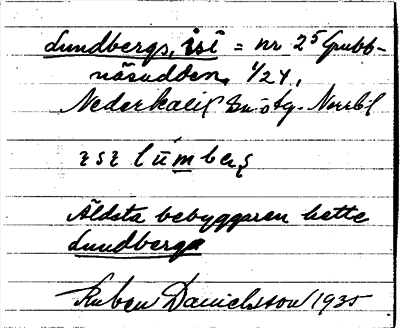 Lundbergs, isi = nr 25 Grubb-
näsudden, 1/24,
Nederkalix sn o tg. Norrb l
Äldsta bebyggaren hette
Lundberg
Ruben Danielsson 1935